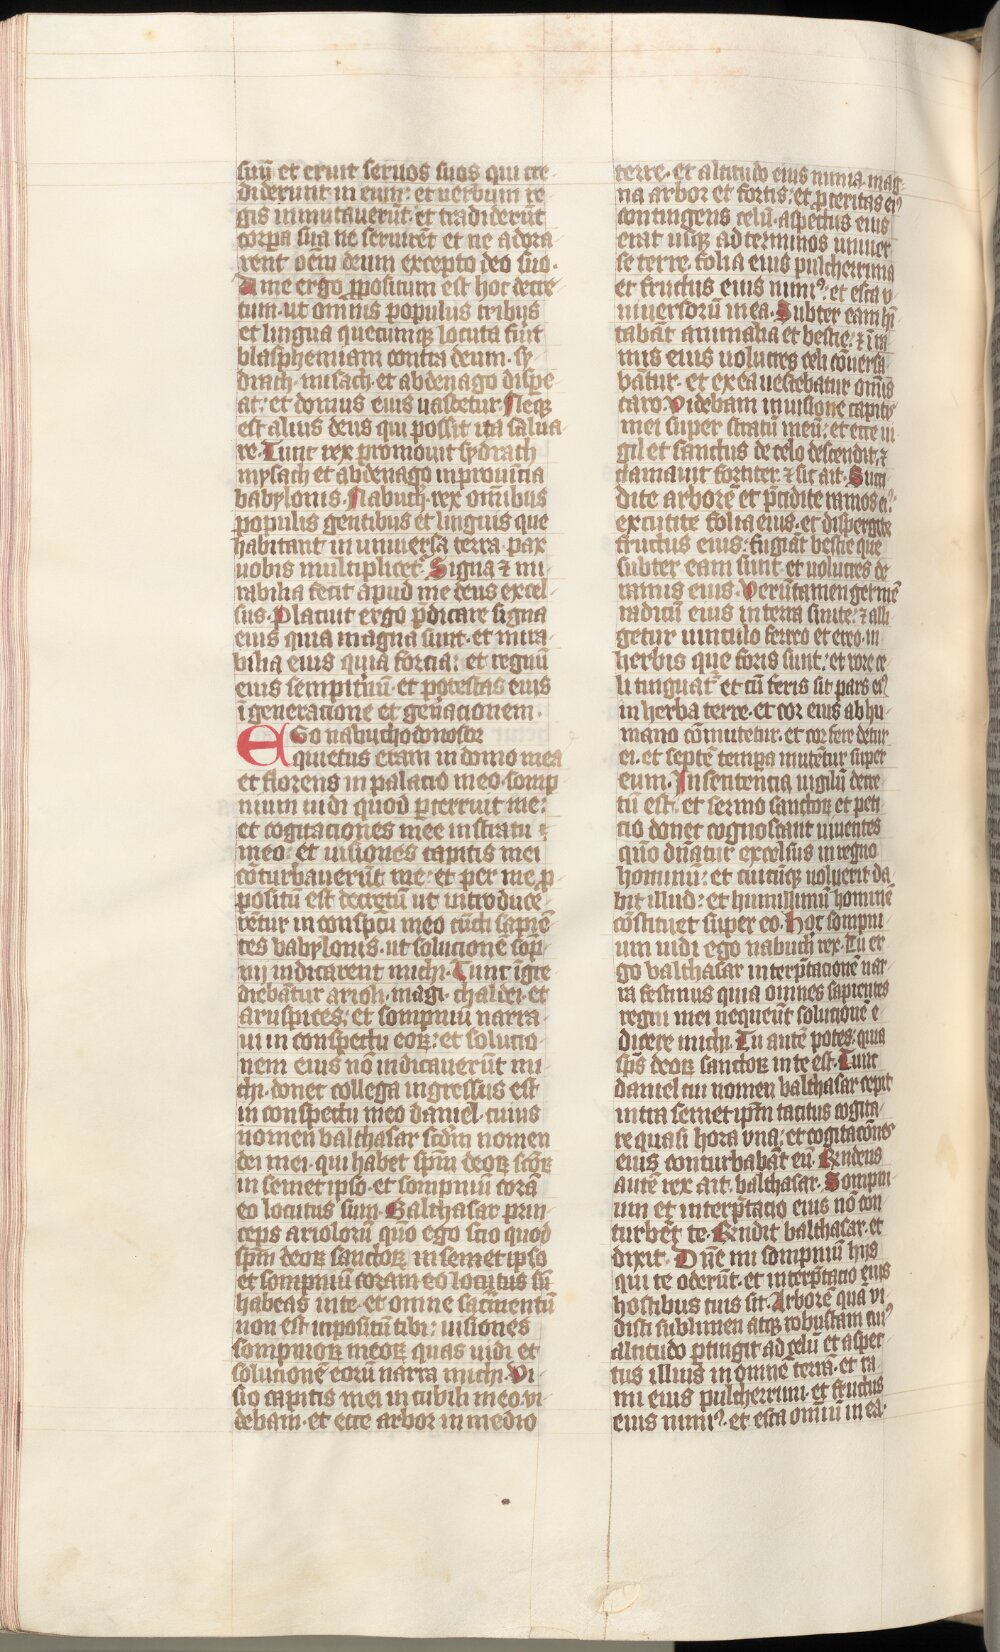 suū et eruit seruos suos qui cre
diderunt in eum: et uerbum re
gis inmutauerūt. et tradiderūt
corpa sua ne seruirēt et ne adora
rent oēm deum excepto deo suo.
A me ergo ꝓpositum est hoc decre
tum. ut omnis populus tribus
et lingua quecumqꝫ locuta fūit
blasphemiam contra deum. sy
drach. misach. et abdenago dispe
at: et domus eius uastetur. Neqꝫ
est alius deus qui possit ita salua
re. Tunc rex promouit sydrach
mysach et abdenago in prouīcia
babylonis. Nabuch. rex omībus
populis gentibus et linguis que
habitant in uniuersa terra. pax
uobis multiplicet᷑. Signa ⁊ mi
rabilia fecit apud me deus excel
sus. Placuit ergo p̄dicare signa
eius quia magna sunt. et mira
bilia eius quia forcia: et regnū
eius sempitnū. et potestas eius
ī generatione et gen̄acionem.
EGo nabuchodonosor
quietus eram in domo mea
et florens in palacio meo. somp
nium uidi quod ꝑterruit me:
et cogitaciones mee in stratu
meo. et uisiones capitis mei
cōturbauerūt me. et per me ꝓ
positū est decretū ut introduce
retur in conspcū meo cūcti sapiē
tes babylonis. ut solucionē sop̄
nij indicarent michi. Tunc īgre
diebātur arioli. magi. chaldei. et
aruspices: et sompniū narra
ui in conspectu eoꝝ: et solucio
nem eius nō indicauerūt mi
chi. donec collega ingressus est
in conspectu meo daniel. cuius
nomen balthasar scdm nomen
dei mei. qui habet spm̄ deoꝝ scōꝝ
in semet ipso. et sompniū corā
eo locutus sum. Balthasar prin
ceps ariolorū. quō ego scio quod
spm̄ deoꝝ sanctoꝝ in semet ipso
et sompniū coram eo locutus sū
habeas in te. et omne sacm̄entū
non est inpossitū tibi: uisiones
sompnioꝝ meoꝝ quas uidi et
solucionē eorū narra michi. Vi
sio capitis mei in cubili meo. vi
debam. et ecce arbor in medio
terre. et altitudo eius nimia. mag
na arbor et fortis. et ꝓceritas eiꝰ
contingens celū. aspectus eius
erat usqꝫ ad terminos uniuer
se terre. folia eius pulcherrima
et fructus eius nimiꝰ: et esca v
niuersorū in ea. Subter eam hī
tabāt animalia et bestie: ⁊ ī ra
mis eius uolucres celi cōuersa
bātur. et ex ea uescebatur omīs
caro. Videbam in uisione capitis
mei super stratū meū: et ecce ui
gil et sanctus de celo descendit. ⁊
clamauit fortiter. ⁊ sic ait. Succi
dite arborē et p̄cidite ramos eiꝰ.
excutite folia eius. et dispergite
fructus eius: fugiāt bestie que
subter eam sunt. et uolucres de
ramis eius. Verūtamen germē
radicū eius in terra sinite. ⁊ alli
getur uinculo ferreo et ereo. in
herbis que foris sunt: et rore ce
li tinguat᷑ et cū feris sit pars eiꝰ
in herba terre. et cor eius ab hu
mano cōmutetur. et cor fere detur
ei. et septē tempa mutētur super
eum. In sententia uigilū decre
tū est. et sermo sanctoꝝ et peti
cio donec cognoscant uiuentes
quō dn̄atur excelsus in regno
hominū: et cuicūqꝫ uoluerit da
bit illud: et humilimū hominē
cōstituet super eo. Hoc sompni
um uidi ego nabuch rex. Tu er
go balthasar interp̄tacionē nar
ra festinus quia omnes sapientes
regni mei nequeūt solucionē e
dicere michi. Tu autē potes. quia
sps̄ deoꝝ sanctoꝝ in te est. Tunc
daniel cui nomen balthasar cepit
intra semet ipm̄ tacitus cogita
re quasi hora vna: et cogitacōnes
eius conturbabāt eū. Rn̄dens
autē rex ait. balthasar. Sompni
um et interp̄tacio eius nō con
turbēt te. Rn̄dit balthasar. et
dixit. Dn̄e mi sompniū hijs
qui te oderūt. et interp̄tacio eius
hostibus tuis sit. Arborē quā vi
disti sublimen atqꝫ robustam cuiꝰ
altitudo ꝑtingit ad celū et aspec
tus illius in omnē terrā. et ra
mi eius pulcherrimi. et fructus
eius nimiꝰ. et esca omīū in ea.